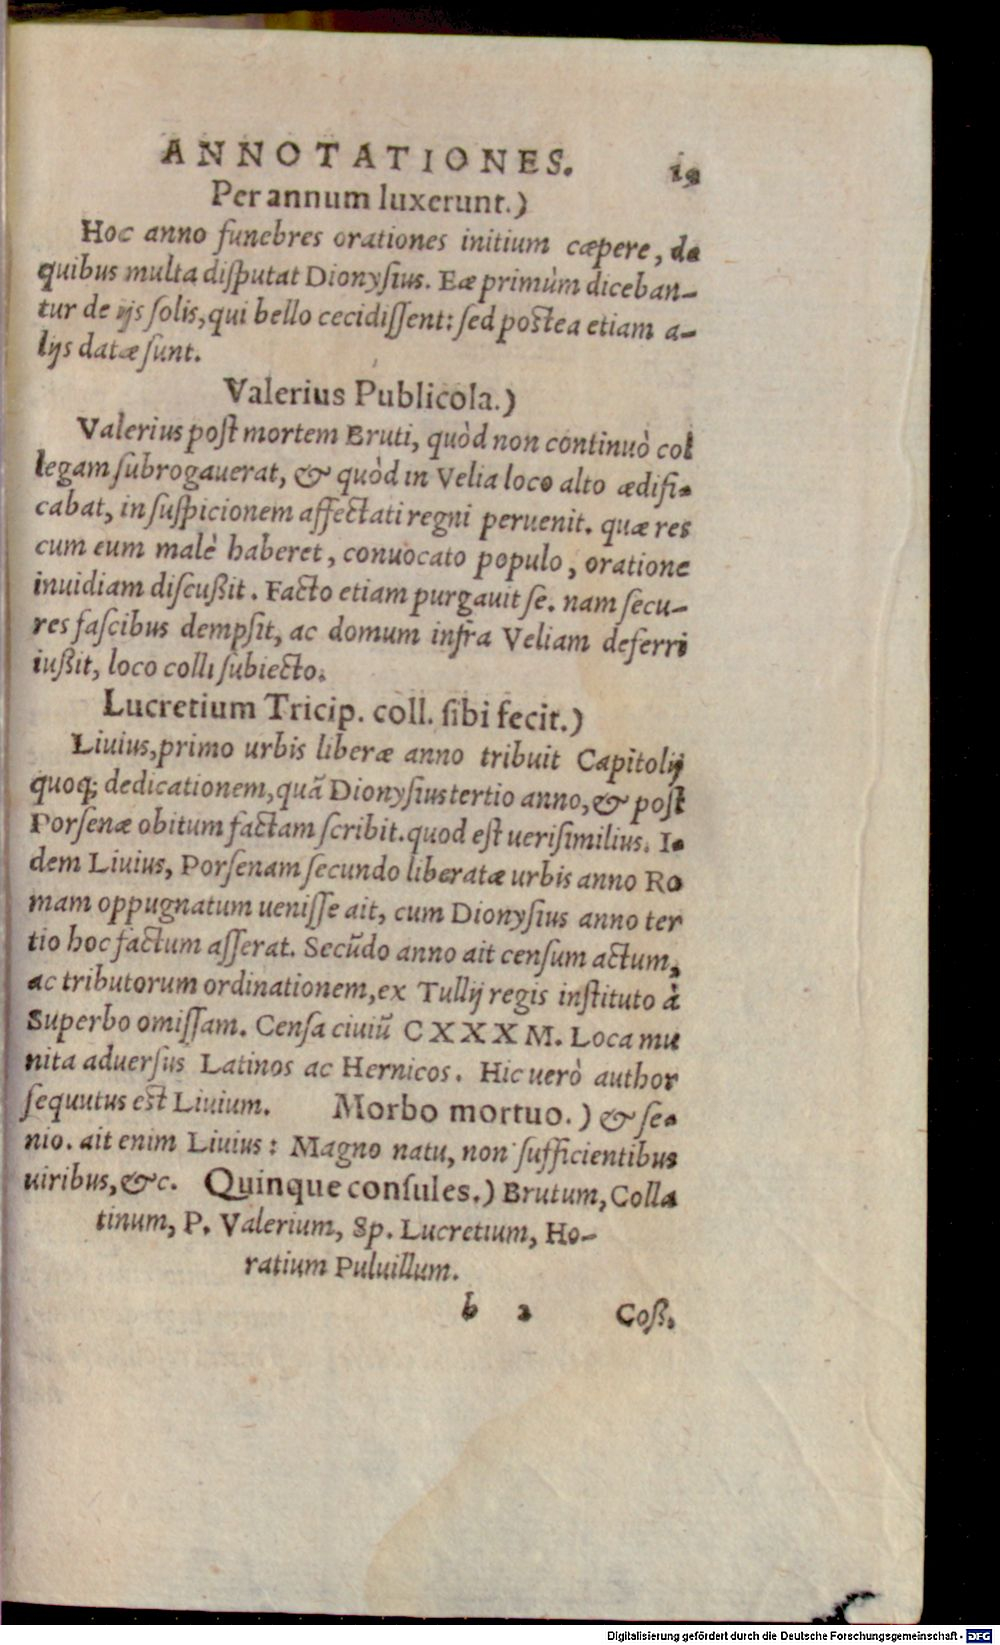 ANNOTATIONES. 19
Per annum luxerunt.)
Hoc anno funebres orationes initium cæpere, de
quibus multa disputat Dionysius. Eæ primùm diceban-
tur de ijs solis, qui bello cecidissent: sed postea etiam a-
lijs datæ sunt.
Valerius Publicola.)
Valerius post mortem Bruti, quòd non continuò col
legam subrogauerat, & quòd in Velia loco alto ædifi-
cabat, in suspicionem affectati regni peruenit. quæ res
cum eum malè haberet, conuocato populo, oratione
inuidiam discußit. Facto etiam purgauit se. nam secu-
res fascibus dempsit, ac domum infra Veliam deferri
iußit, loco colli subiecto.
Lucretium Tricip. coll. sibi fecit.)
Liuius, primo urbis liberæ anno tribuit Capitolij
quoq; dedicationem, quã Dionysius tertio anno, & post
Porsenæ obitum factam scribit. quod est uerisimilius. I-
dem Liuius, Porsenam secundo liberatæ urbis anno Ro
mam oppugnatum uenisse ait, cum Dionysius anno ter
tio hoc factum asserat. Secũdo anno ait censum actum,
ac tributorum ordinationem, ex Tullij regis instituto à
Superbo omissam. Censa ciuiũ CXXX M. Loca mu
nita aduersus Latinos ac Hernicos. Hic uerò author
sequutus est Liuium. Morbo mortuo.) & se-
nio. ait enim Liuius: Magno natu, non sufficientibus
uiribus, &c. Quinque consules.) Brutum, Colla
tinum, P. Valerium, Sp. Lucretium, Ho-
ratium Puluillum.
b 2 Coß.
Digitalisierung gefördert durch die Deutsche Forschungsgemeinschaft - DFG